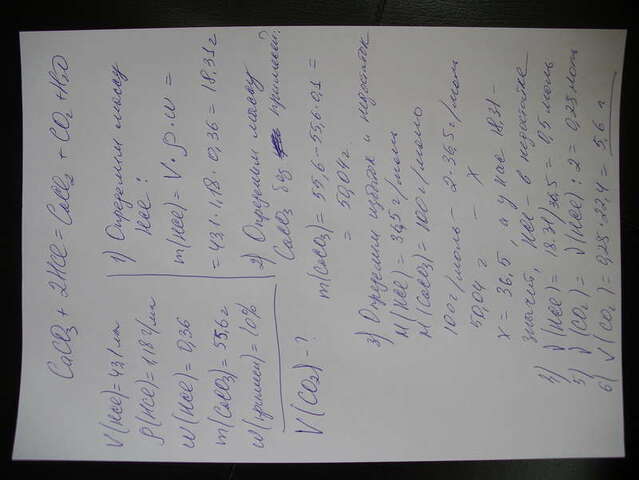 CaCO₃ + 2HCl = CaCl₂ + CO₂ + H₂O
V(HCl) = 43,1 мл
ρ(HCl) = 1,18 г/мл
w(HCl) = 0,36
m(CaCO₃) = 55,6 г
w(примесей) = 10%
V(CO₂) - ?
1) Определим массу
HCl:
m(HCl) = V · ρ · w =
= 43,1 · 1,18 · 0,36 = 18,31 г
2) Определим массу
CaCO₃ без примесей.
m(CaCO₃) = 55,6 - 55,6 · 0,1 =
= 50,04 г.
3) Определим избыток и недостаток
M(HCl) = 36,5 г/моль
M(CaCO₃) = 100 г/моль
100 г/моль - 2 · 36,5 г/моль
50,04 г - x
x = 36,5, а у нас 18,31 -
значит, HCl - в недостатке
4) ν(HCl) = 18,31/36,5 = 0,5 моль
5) ν(CO₂) = ν(HCl) : 2 = 0,25 моль
6) V(CO₂) = 0,25 · 22,4 = 5,6 л